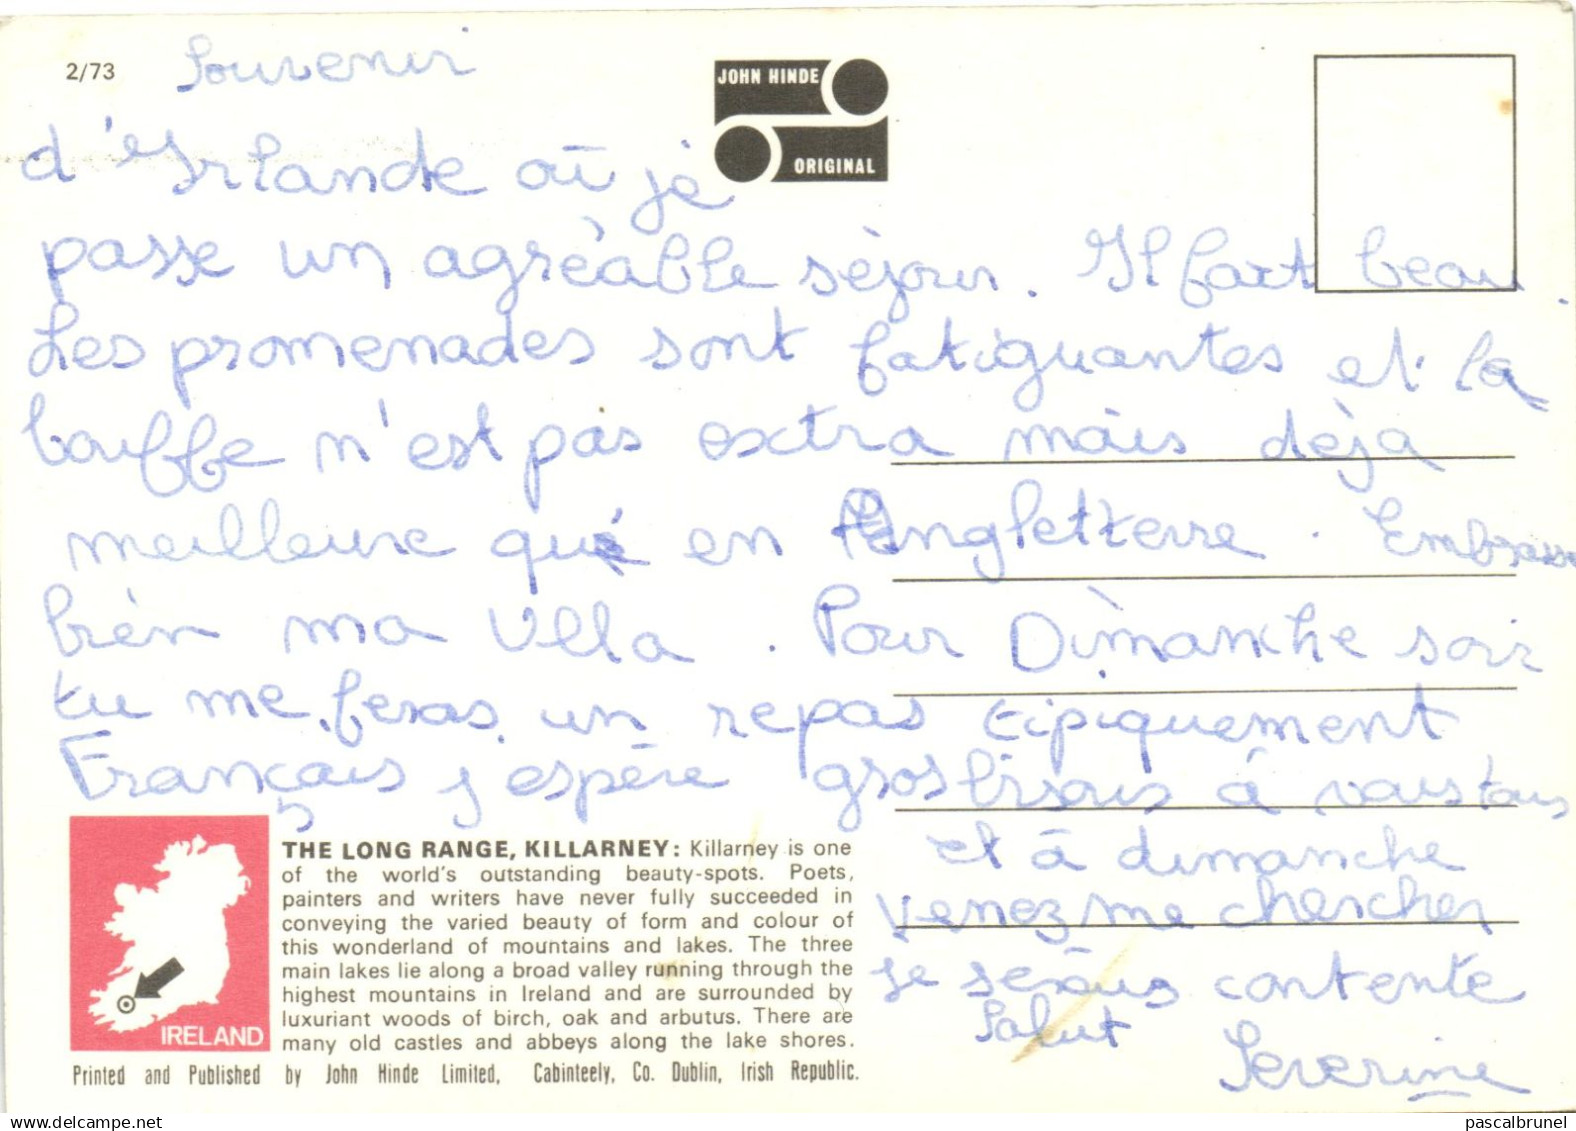 2/73
Souvenir
JOHN HINDE
ORIGINAL
d'Irlande où je
passe un agréable séjour. Il fait beau.
Les promenades sont fatiguantes et la
bouffe n'est pas extra mais déjà
meilleure que en Angletterre. Embrasse
bien ma Ulla. Pour Dimanche soir
tu me feras un repas tipiquement
Français j'espère gros bisous à vous tous
et à dimanche
venez me chercher
je serais contente
Salut
Severine
THE LONG RANGE, KILLARNEY: Killarney is one
of the world's outstanding beauty-spots. Poets,
painters and writers have never fully succeeded in
conveying the varied beauty of form and colour of
this wonderland of mountains and lakes. The three
main lakes lie along a broad valley running through the
highest mountains in Ireland and are surrounded by
luxuriant woods of birch, oak and arbutus. There are
many old castles and abbeys along the lake shores.
IRELAND
Printed and Published by John Hinde Limited, Cabinteely, Co. Dublin, Irish Republic.
pascalbrunel